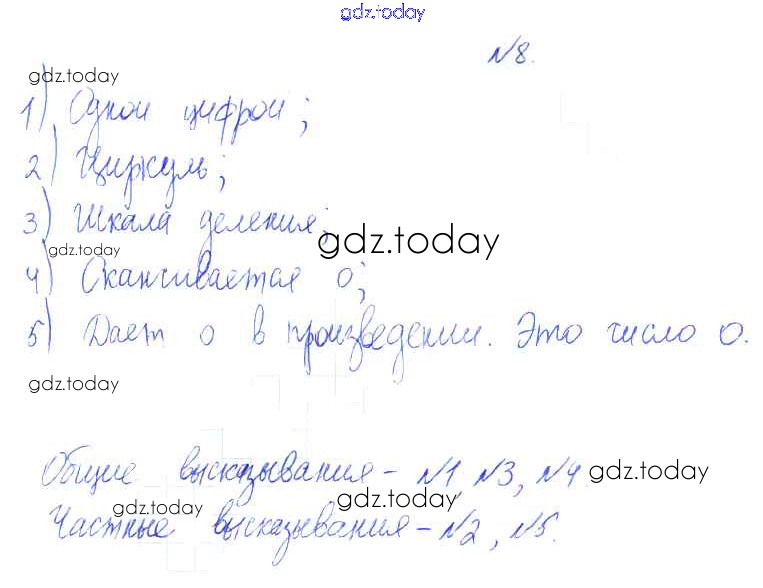 gdz.today
№8.
gdz.today
1) Одной цифрой;
2) Циркуль;
3) Шкала деления;
gdz.today
gdz.today
4) Сканчивается 0;
5) Дает 0 в произведении. Это число 0.
gdz.today
Общие высказывания – №1, №3, №4.
gdz.today
gdz.today
gdz.today
Частные высказывания – №2, №5.